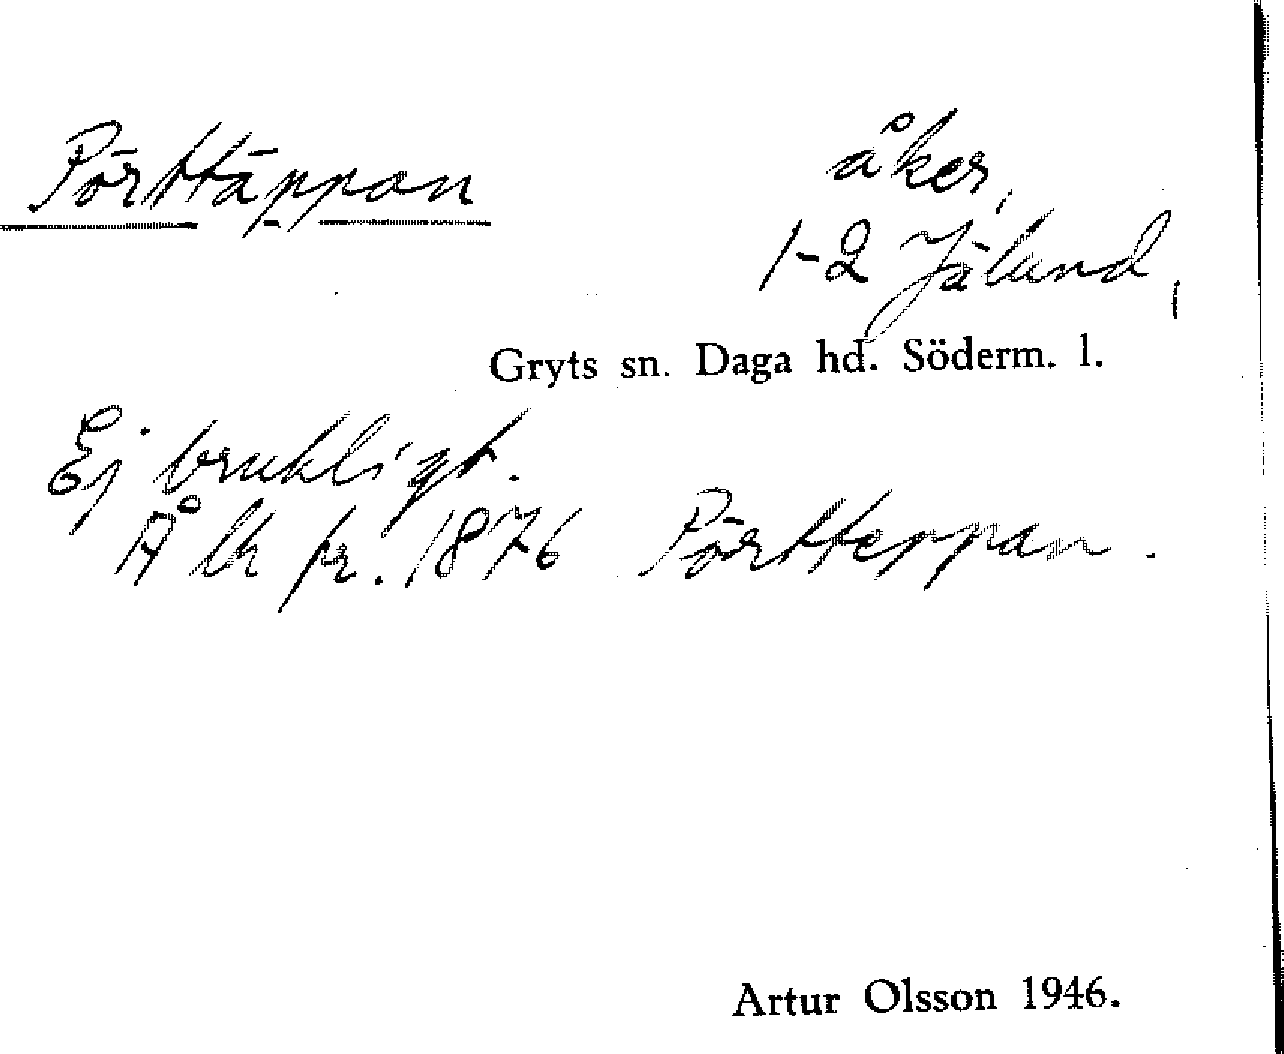 Pörttäppan
åker,
1-2 Jälund,
Gryts sn. Daga hd. Söderm. l.
Ej brukligt.
Å lk pr. 1876 Pörtteppan.
Artur Olsson 1946.